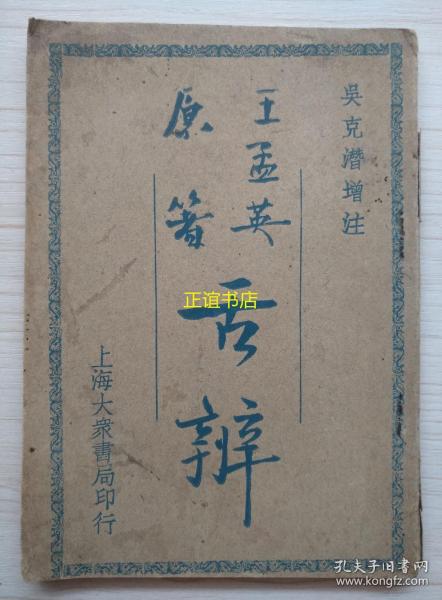 吳克潛增注
王孟英
原著
舌辨
上海大衆書局印行
正谊书店
孔夫子旧书网
www.kongfz.com